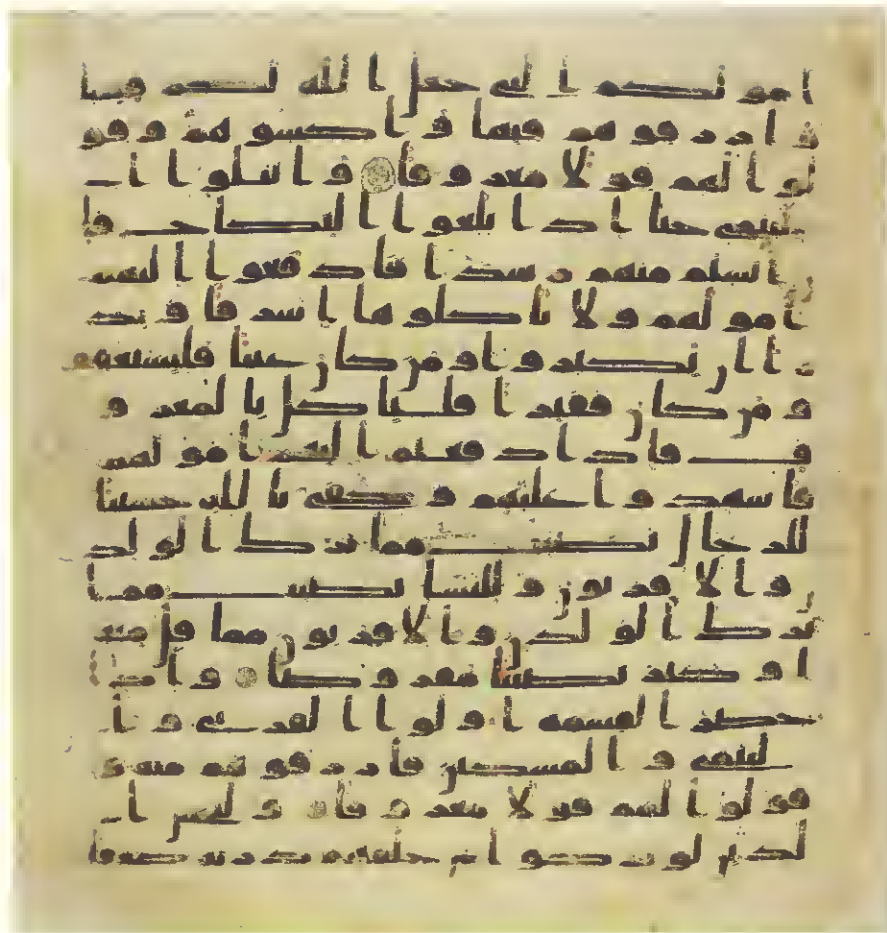 امولكم التي جعل الله لكم قيما
و ارزقوهم فيها و اكسوهم و قو
لوا لهم قولا معروفا و ابتلوا ا
ليتمى حتا اذا بلغوا النكاح فا
ن انستم منهم رشدا فادفعوا اليهم
امولهم و لا تاكلوها اسرافا و بد
ارا ان يكبروا و من كان غنيا فليستعفف
و من كان فقيرا فلياكل بالمعرو
ف فاذا دفعتم اليهم امولهم
فاشهدوا عليهم و كفى بالله حسيبا
للرجال نصيب مما ترك الولد
ن و الاقربون و للنسا نصيب مما
ترك الولدن و الاقربون مما قل منه
او كثر نصيبا مفروضا و اذا
حضر القسمة اولوا القربى و ا
ليتمى و المسكين فارزقوهم منه و
قولوا لهم قولا معروفا و ليخش ا
لذين لو تركوا من خلفهم ذرية ضعفا